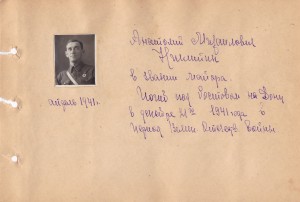 Анатолий Михайлович
в звании майора.
Погиб под Ростовом на Дону
в декабре 1941 года в
период Войны
апрель 1941г.